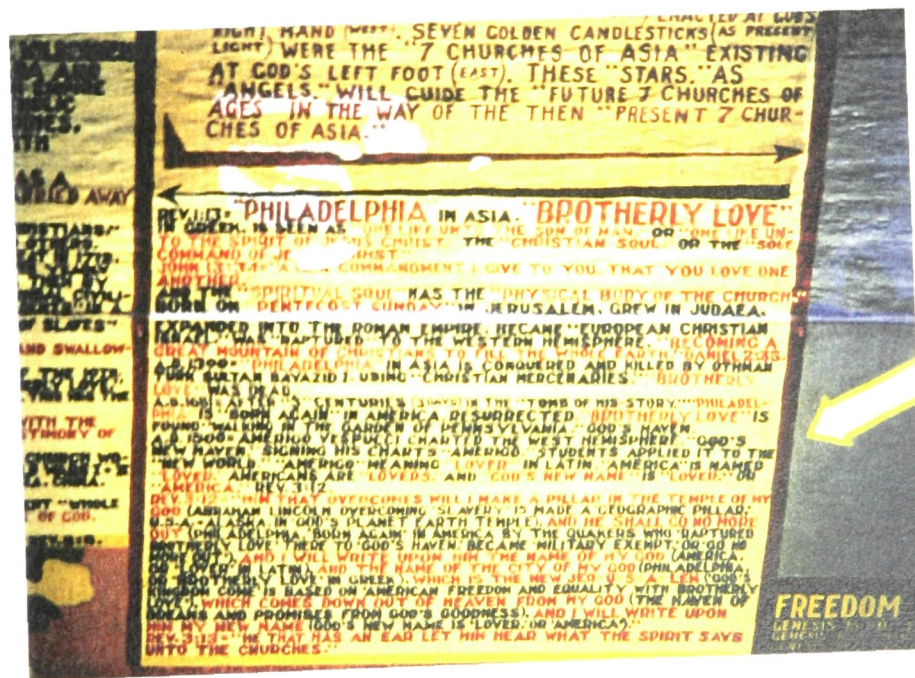 ENACTED AT GOD'S
RIGHT HAND (WEST). SEVEN GOLDEN CANDLESTICKS (AS PRESENT
LIGHT) WERE THE "7 CHURCHES OF ASIA" EXISTING
AT GOD'S LEFT FOOT (EAST). THESE "STARS," AS
"ANGELS," WILL GUIDE THE "FUTURE 7 CHURCHES OF
AGES IN THE WAY OF THE THEN "PRESENT 7 CHUR-
CHES OF ASIA."
REV.1:13= "PHILADELPHIA IN ASIA. "BROTHERLY LOVE"
IN GREEK, IS SEEN AS "ONE LIKE UNTO THE SON OF MAN, OR "ONE LIFE UN-
TO THE SPIRIT OF JESUS CHRIST, THE "CHRISTIAN SOUL, OR THE "SOLE
COMMAND OF JESUS CHRIST."
JOHN 13:34= "A NEW COMMANDMENT I GIVE TO YOU, THAT YOU LOVE ONE
ANOTHER.
AND THE "SPIRITUAL SOUL" HAS THE "PHYSICAL BODY OF THE CHURCH"
BORN ON "PENTECOST SUNDAY" IN JERUSALEM, GREW IN JUDAEA,
EXPANDED INTO THE ROMAN EMPIRE, BECAME "EUROPEAN CHRISTIAN
ISRAEL," WAS "RAPTURED" TO THE WESTERN HEMISPHERE, "BECOMING A
GREAT MOUNTAIN OF CHRISTIANS TO FILL THE WHOLE EARTH." DANIEL 2:35.
A.D.1390= "PHILADELPHIA" IN ASIA IS CONQUERED AND KILLED BY OTHMAN
TURK SULTAN BAYAZID I, USING "CHRISTIAN MERCENARIES." "BROTHERLY
LOVE" WAS DEAD.
AFTER "3" CENTURIES (3 DAYS) IN THE "TOMB OF HIS-STORY," "PHILADEL-
PHIA" IS "BORN AGAIN" IN AMERICA RESURRECTED. "BROTHERLY LOVE" IS
FOUND "WALKING IN THE GARDEN OF PENNSYLVANIA," GOD'S HAVEN.
A.D.1500= AMERIGO VESPUCCI CHARTED THE WEST HEMISPHERE, "GOD'S
NEW HAVEN," SIGNING HIS CHARTS "AMERIGO." STUDENTS APPLIED IT TO THE
"NEW WORLD." "AMERIGO" MEANING "LOVER" IN LATIN, "AMERICA" IS NAMED
"LOVER." AMERICANS ARE "LOVERS," AND "GOD'S NEW NAME" IS "LOVER," OR
"AMERICA," REV.3:12.
REV.3:12= "HIM THAT OVERCOMES WILL I MAKE A PILLAR IN THE TEMPLE OF MY
GOD (ABRAHAM LINCOLN OVERCOMING "SLAVERY" IS MADE A GEOGRAPHIC PILLAR,
U.S.A.-ALASKA IN GOD'S PLANET EARTH TEMPLE), AND HE SHALL GO NO MORE
OUT (PHILADELPHIA "BORN AGAIN" IN AMERICA BY THE QUAKERS WHO "RAPTURED
BROTHERLY LOVE" THERE TO "GOD'S HAVEN," BECAME MILITARY EXEMPT, OR GO NO
MORE OUT), AND I WILL WRITE UPON HIM THE NAME OF MY GOD (AMERICA,
OR "LOVER" IN LATIN), AND THE NAME OF THE CITY OF MY GOD (PHILADELPHIA,
OR "BROTHERLY LOVE" IN GREEK), WHICH IS THE NEW JER-U.S.A.-LEM (GOD'S
KINGDOM COME IS BASED ON AMERICAN FREEDOM AND EQUALITY WITH BROTHERLY
LOVE), WHICH COMES DOWN OUT OF HEAVEN FROM MY GOD (THE HAVEN OF
DREAMS AND PROMISES FROM GOD'S GOODNESS), AND I WILL WRITE UPON
HIM MY NEW NAME (GOD'S NEW NAME IS "LOVER," OR "AMERICA").
REV.3:13= "HE THAT HAS AN EAR LET HIM HEAR WHAT THE SPIRIT SAYS
UNTO THE CHURCHES."
AS A
AWAY
OTHERS.
OF SLAVES"
AND SWALLOW-
WITH THE
TESTIMONY OF
CHURCH WO-
"WHOLE
OF GOD.
FREEDOM
GENESIS
GENESIS